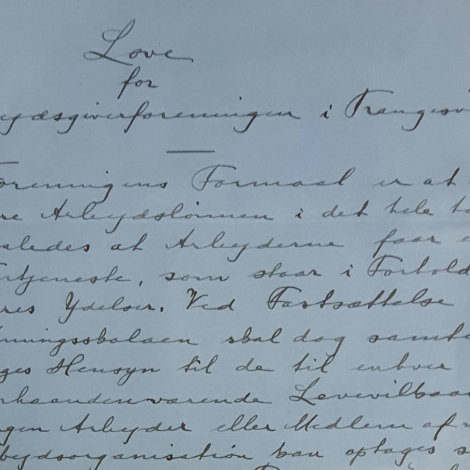 Love
for
ejdsgiverforeningen i Trangisv
Foreningens Formaal er at
re Arbejdslønnen i det hele t
saaledes at Arbejderne faar
rtjeneste, som staar i Forhold
res Ydelser. Ved Fastsættelse
nningsskalaen skal dog samti
ges Hensyn til de til enhver
rhaandenværende Levevilkaa
gen Arbejder eller Medlem af
bejdsorganisation kan optages s